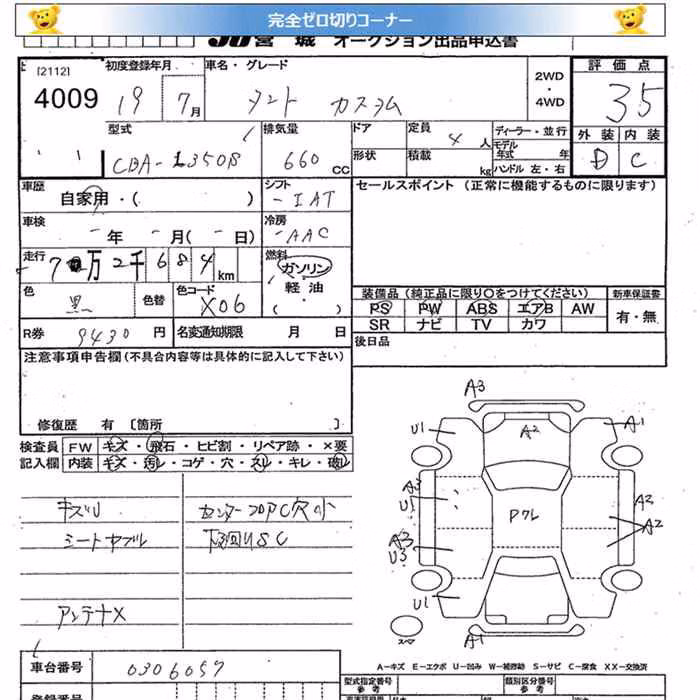 完全ゼロ切りコーナー
JU宮城 オークション出品申込書
[2112]
4009
初度登録年月
19 7月
車名・グレード
タント カスタム
2WD
・
4WD
評価点
35
型式
CBA-L350S
排気量
660 CC
ドア
形状
定員
4 人
積載 kg
ディーラー・並行
モデル年式 年
ハンドル 左・右
外装 内装
D C
車歴
自家用・( )
シフト
IAT
セールスポイント (正常に機能するものに限ります)
車検
年 月( 日)
冷房
AAC
走行
7万2千684km
燃料
ガソリン
軽油
( )
色
黒
色替
色コード
X06
装備品 (純正品に限り○をつけてください)
新車保証書
PS PW ABS エアB AW
SR ナビ TV カワ
有・無
R券 9430円
名変通知期限 月 日
後日品
注意事項申告欄 (不具合内容等は具体的に記入して下さい)
修復歴 有 [箇所 ]
検査員
記入欄
FW キズ・飛石・ヒビ割・リペア跡・×要
内装 キズ・汚レ・コゲ・穴・スレ・キレ・破レ
キズU
シートヤブレ
アンテナX
下廻りSC
A3
U1
A2
A1
A3
U1
Pワレ
A2
A2
A3
U3
U1
A1
スペア
A-キズ E-エクボ U-凹み W-補修跡 S-サビ C-腐食 XX-交換済
車台番号
0306057
型式指定番号
参考
類別区分番号
参考
登録番号